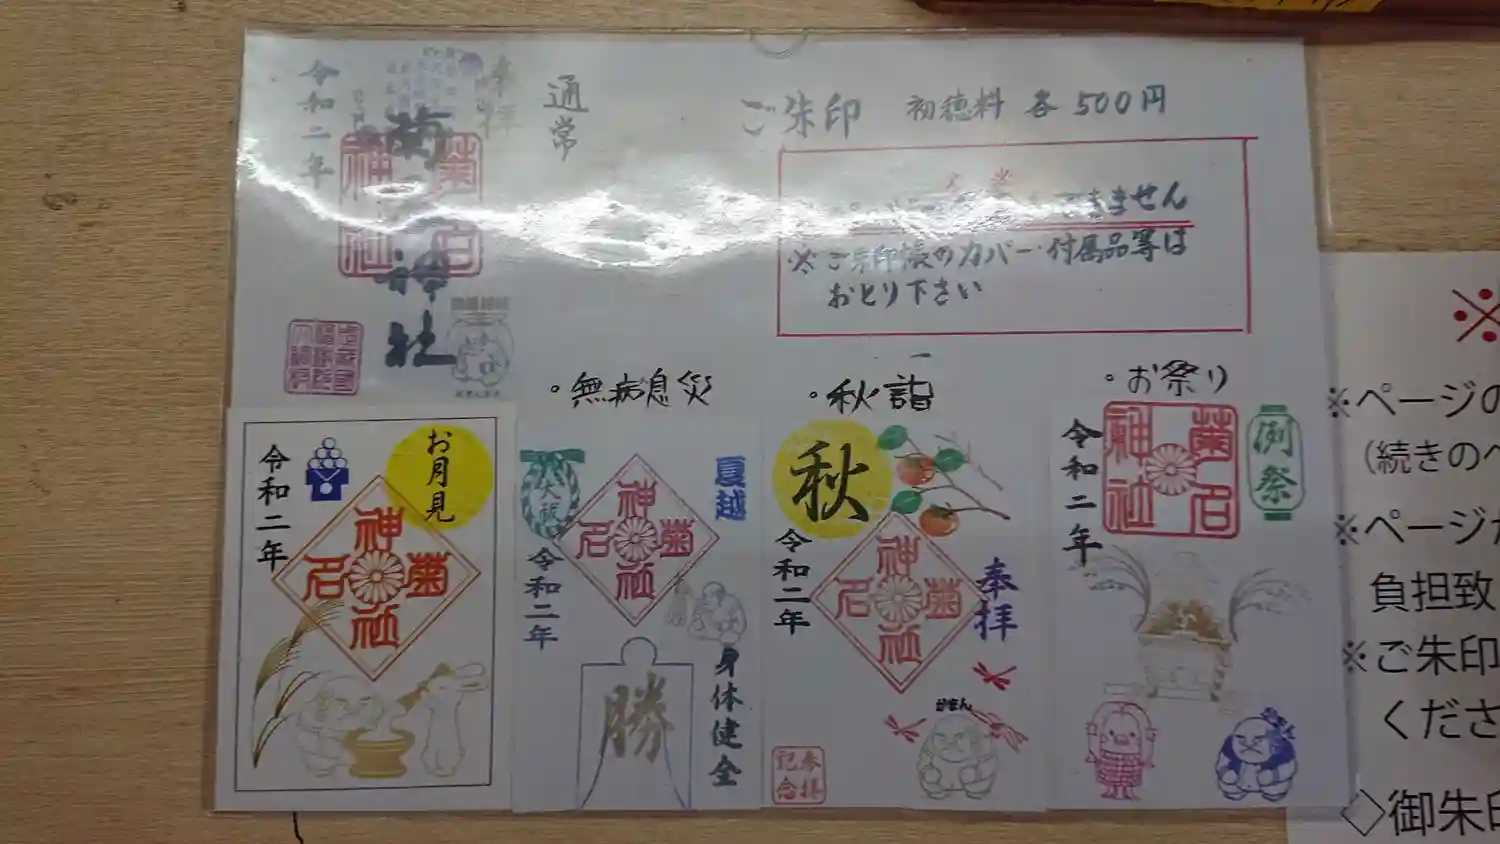 令和二年
通常
ご朱印 初穂料 各500円
ません
※ご朱印帳のカバー・付属品等は
おとり下さい
神社
菊名
神社
・無病息災
・秋詣
・お祭り
令和二年
お月見
神社
菊名
令和二年
夏越
神社
菊名
身体健全
勝
秋
令和二年
神社
菊名
奉拝
がまん
参拝
記念
令和二年
菊名
神社
例祭
※
※ページの
(続きのペ
※ページが
負担致
※ご朱印
くださ
◇御朱印